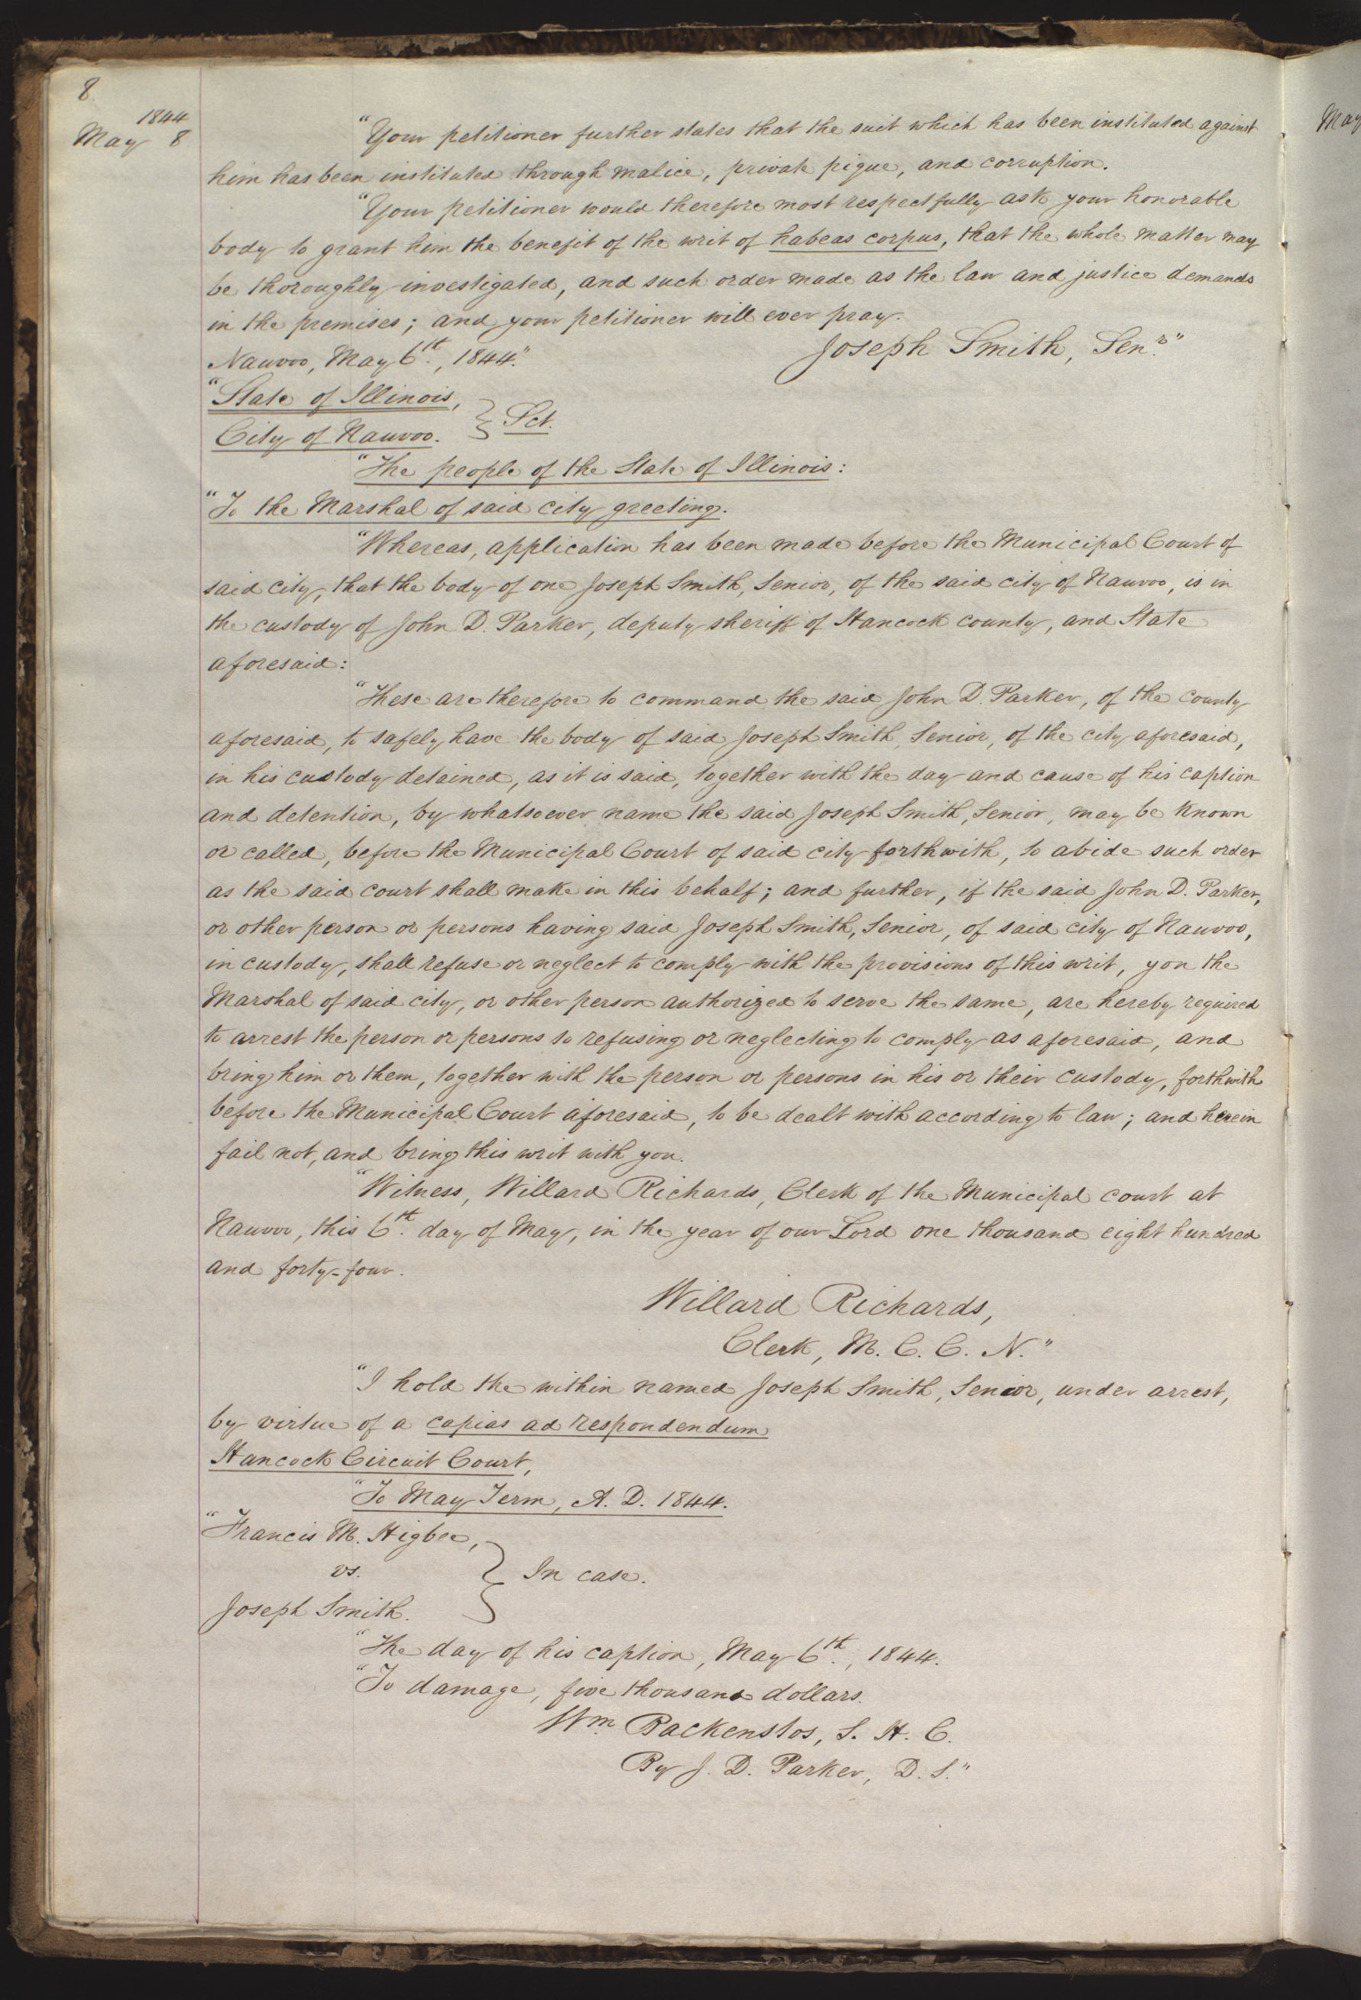 8
1844
May 8
"Your petitioner further states that the suit which has been instituted against
him has been instituted through malice, private pique, and corruption.
"Your petitioner would therefore most respectfully ask your honorable
body to grant him the benefit of the writ of habeas corpus, that the whole matter may
be thoroughly investigated, and such order made as the law and justice demands
in the premises; and your petitioner will ever pray.
Joseph Smith, Senr."
Nauvoo, May 6th., 1844."
"State of Illinois,
City of Nauvoo. } Sct.
"The people of the State of Illinois:
"To the Marshal of said city greeting.
"Whereas, application has been made before the Municipal Court of
said city, that the body of one Joseph Smith, Senior, of the said city of Nauvoo, is in
the custody of John D. Parker, deputy sheriff of Hancock county, and State
aforesaid:
"These are therefore to command the said John D. Parker, of the county
aforesaid, to safely have the body of said Joseph Smith, Senior, of the city aforesaid,
in his custody detained, as it is said, together with the day and cause of his caption
and detention, by whatsoever name the said Joseph Smith, Senior, may be known
or called, before the Municipal Court of said city forthwith, to abide such order
as the said court shall make in this behalf; and further, if the said John D. Parker,
or other person or persons having said Joseph Smith, Senior, of said city of Nauvoo,
in custody, shall refuse or neglect to comply with the provisions of this writ, you the
Marshal of said city, or other person authorized to serve the same, are hereby required
to arrest the person or persons so refusing or neglecting to comply as aforesaid, and
bring him or them, together with the person or persons in his or their custody, forthwith
before the Municipal Court aforesaid, to be dealt with according to law; and herein
fail not, and bring this writ with you.
"Witness, Willard Richards, Clerk of the Municipal court at
Nauvoo, this 6th. day of May, in the year of our Lord one thousand eight hundred
and forty-four.
Willard Richards,
Clerk, M. C. C. N."
"I hold the within named Joseph Smith, Senior, under arrest,
by virtue of a capias ad respondendum
Hancock Circuit Court,
"To May Term, A. D. 1844.
"Francis M. Higbee,
vs. } In case.
Joseph Smith.
"The day of his caption, May 6th., 1844.
"To damage, five thousand dollars.
Wm. Backenstos, S. H. C.
By J. D. Parker, D. S."
May